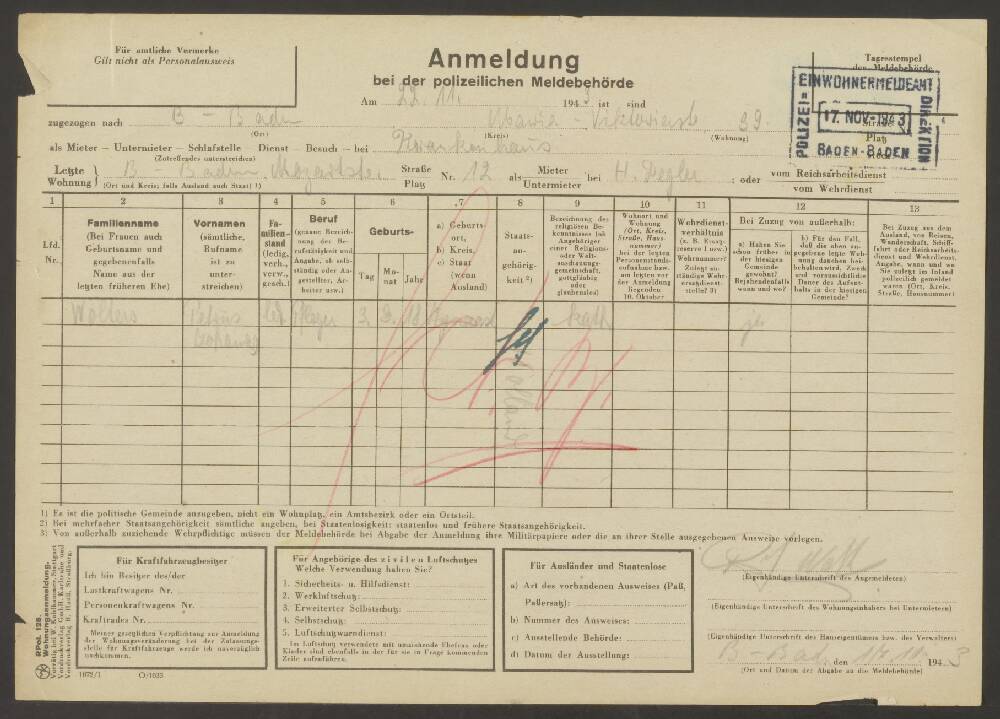 Für amtliche Vermerke
Gilt nicht als Personalausweis
Anmeldung
bei der polizeilichen Meldebehörde
Tagesstempel
der Meldebehörde
EINWOHNERMELDEAMT
POLIZEI=
DIREKTION
17. NOV. 1943
BADEN-BADEN
Am 22. 11. 1943 ist sind
zugezogen nach B - Baden Maria - Viktoriastr 39.
(Ort) (Kreis) Straße Platz (Wohnung)
als Mieter – Untermieter – Schlafstelle – Dienst – Besuch – bei Krankenhaus
(Zutreffendes unterstreichen)
Letzte Wohnung B - Baden, Mozartstr Straße Platz Nr. 12 als Mieter Untermieter bei H. ; oder vom Reichsarbeitsdienst vom Wehrdienst
(Ort und Kreis; falls Ausland auch Staat) 1)
1 2 3 4 5 6 7 8 9 10 11 12 13
Lfd. Nr.
Familienname (Bei Frauen auch Geburtsname und gegebenenfalls Name aus der letzten früheren Ehe)
Vornamen (sämtliche, Rufname ist zu unterstreichen)
Familienstand (ledig, verh., verw., gesch.)
Beruf (genaue Bezeichnung der Berufstätigkeit und Angabe, ob selbständig oder Angestellter, Arbeiter usw.)
Geburts- Tag Monat Jahr
a) Geburtsort, b) Kreis, c) Staat (wenn Ausland)
Staatsangehörigkeit 2)
Bezeichnung des religiösen Bekenntnisses (ob Angehöriger einer Religions- oder Weltanschauungsgemeinschaft, gottgläubig oder glaubenslos)
Wohnort und Wohnung (Ort, Kreis, Straße, Hausnummer) bei der letzten Personenstandsaufnahme bzw. am letzten vor der Anmeldung liegenden 10. Oktober
Wehrdienstverhältnis (z. B. Ersatzreserve I usw.) Wehrnummer? Zulegt zuständige Wehrersatzdienststelle? 3)
Bei Zuzug von außerhalb:
a) Haben Sie schon früher in der hiesigen Gemeinde gewohnt? Bejahendenfalls wann und wo?
b) Für den Fall, daß die oben angegebene letzte Wohnung daneben beibehalten wird, Zweck und voraussichtliche Dauer des Aufenthalts in der hiesigen Gemeinde?
Bei Zuzug aus dem Ausland, von Reisen, Wanderschaft, Schiffahrt oder Reichsarbeitsdienst und Wehrdienst, Angabe, wann und wo Sie zuletzt im Inland polizeilich gemeldet waren (Ort, Kreis, Straße, Hausnummer)
Wolters Petrus led. 3. kath ja
Holland
1) Es ist die politische Gemeinde anzugeben, nicht ein Wohnplatz, ein Amtsbezirk oder ein Ortsteil.
2) Bei mehrfacher Staatsangehörigkeit sämtliche angeben, bei Staatenlosigkeit: staatenlos und frühere Staatsangehörigkeit.
3) Von außerhalb zuziehende Wehrpflichtige müssen der Meldebehörde bei Abgabe der Anmeldung ihre Militärpapiere oder die an ihrer Stelle ausgegebenen Ausweise vorlegen.
RPol. 128. Wohnungsanmeldung.
Vorrätig bei W. Kohlhammer, Stuttgart
Für Kraftfahrzeugbesitzer
Ich bin Besitzer des/der
Lastkraftwagens Nr.
Personenkraftwagens Nr.
Kraftrades Nr.
Meiner gesetzlichen Verpflichtung zur Anmeldung der Wohnungsveränderung bei der Zulassungsstelle für Kraftfahrzeuge werde ich unverzüglich nachkommen.
Für Angehörige des zivilen Luftschutzes
Welche Verwendung haben Sie?
1. Sicherheits- u. Hilfsdienst:
2. Werkluftschutz:
3. Erweiterter Selbstschutz:
4. Selbstschutz:
5. Luftschutzwarndienst:
Im Luftschutz verwendete mit umziehende Ehefrau oder Kinder sind ebenfalls in der für sie in Frage kommenden Zeile aufzuführen.
Für Ausländer und Staatenlose
a) Art des vorhandenen Ausweises (Paß, Paßersatz):
b) Nummer des Ausweises:
c) Ausstellende Behörde:
d) Datum der Ausstellung:
(Eigenhändige Unterschrift des Angemeldeten)
(Eigenhändige Unterschrift des Wohnungsinhabers bei Untermietern)
(Eigenhändige Unterschrift des Hauseigentümers bzw. des Verwalters)
B - Bad, den 17. 11. 1943
(Ort und Datum der Abgabe an die Meldebehörde)
1072/1
O/1033